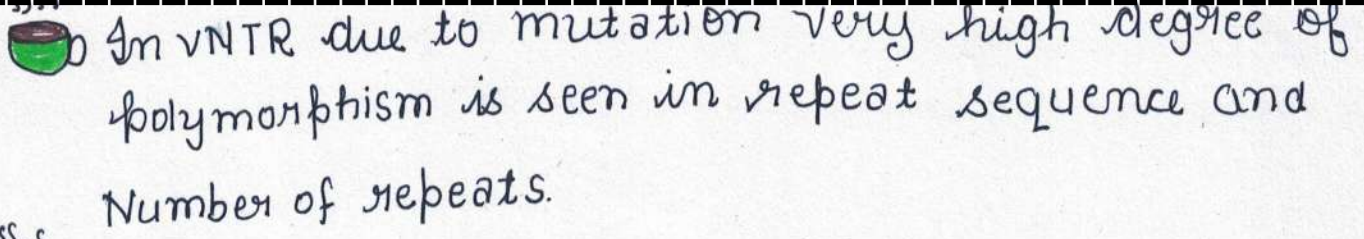 In VNTR due to mutation very high degree of
polymorphism is seen in repeat sequence and
Number of repeats.